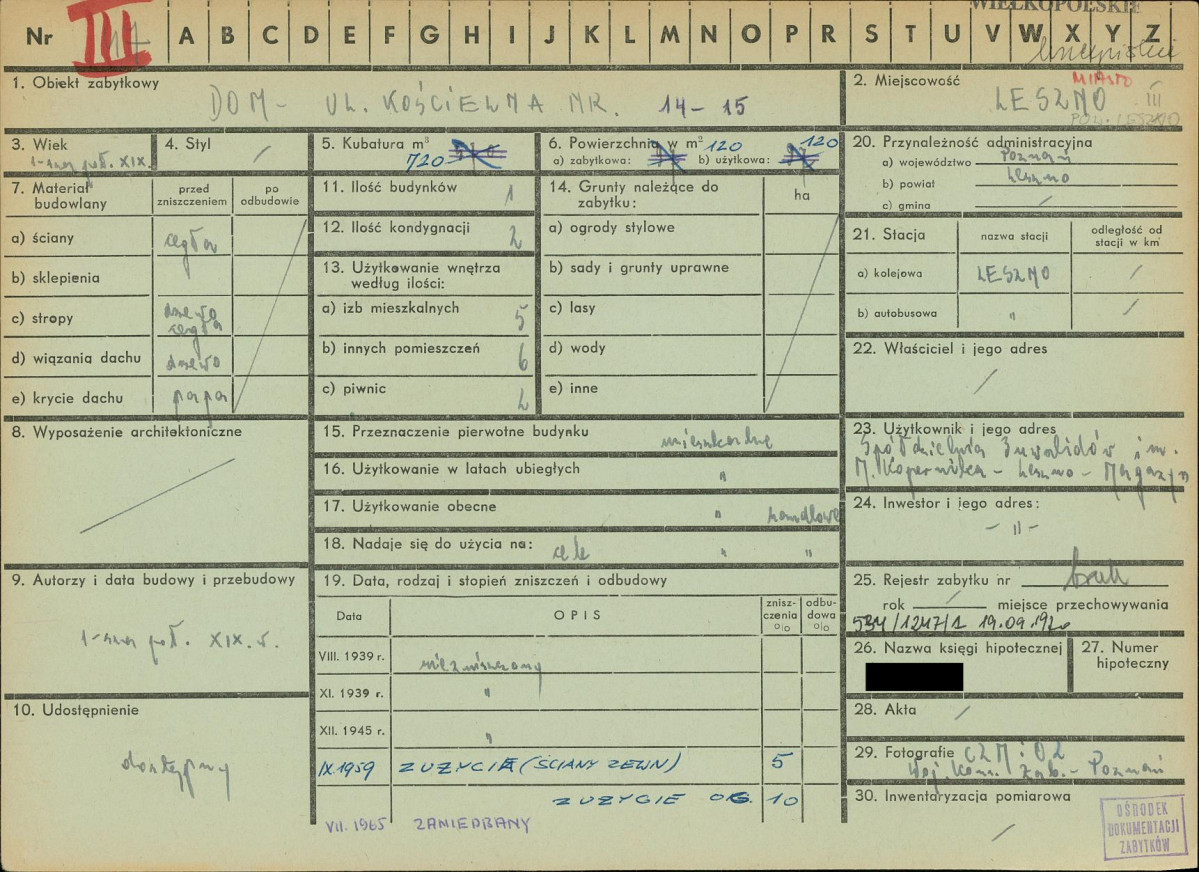 WIELKOPOLSKIE
Nr III A B C D E F G H I J K L M N O P R S T U V W X Y Z
1. Obiekt zabytkowy
DOM - UL. KOŚCIELNA NR. 14-15
2. Miejscowość
MIASTO
LESZNO III
POW. LESZNO
3. Wiek
1-sza poł. XIX.
4. Styl /
5. Kubatura m³
720
6. Powierzchnia w m² 120 120
a) zabytkowa: b) użytkowa:
20. Przynależność administracyjna
a) województwo Poznań
b) powiat Leszno
c) gmina /
7. Materiał budowlany
przed zniszczeniem
po odbudowie
a) ściany cegła
b) sklepienia
c) stropy drzewo cegła
d) wiązania dachu drzewo
e) krycie dachu papa
11. Ilość budynków 1
12. Ilość kondygnacji 2
13. Użytkowanie wnętrza według ilości:
a) izb mieszkalnych 5
b) innych pomieszczeń 6
c) piwnic 2
14. Grunty należące do zabytku:
ha
a) ogrody stylowe
b) sady i grunty uprawne
c) lasy
d) wody
e) inne
21. Stacja
nazwa stacji
odległość od stacji w km
a) kolejowa LESZNO /
b) autobusowa " /
22. Właściciel i jego adres
/
8. Wyposażenie architektoniczne
15. Przeznaczenie pierwotne budynku mieszkalne
16. Użytkowanie w latach ubiegłych "
17. Użytkowanie obecne " handlowe
18. Nadaje się do użycia na: cele " "
23. Użytkownik i jego adres
Spółdzielnia Inwalidów im.
M. Kopernika - Leszno - Magazyn
24. Inwestor i jego adres:
- " -
9. Autorzy i data budowy i przebudowy
1-sza poł. XIX. w.
19. Data, rodzaj i stopień zniszczeń i odbudowy
Data
OPIS
zniszczenia o/o
odbudowa o/o
VIII. 1939 r. niezniszczony
XI. 1939 r. "
XII. 1945 r. "
IX.1959 ZUŻYCIE (ŚCIANY ZEWN) 5
ZUŻYCIE OG. 10
VII. 1965 ZANIEDBANY
25. Rejestr zabytku nr brak
rok / miejsce przechowywania
534/1247/A 19.09.1970
26. Nazwa księgi hipotecznej
27. Numer hipoteczny
28. Akta /
10. Udostępnienie
dostępny
29. Fotografie CZM i OZ
Woj. Kons. Zab. - Poznań
30. Inwentaryzacja pomiarowa
/
OŚRODEK
DOKUMENTACJI
ZABYTKÓW